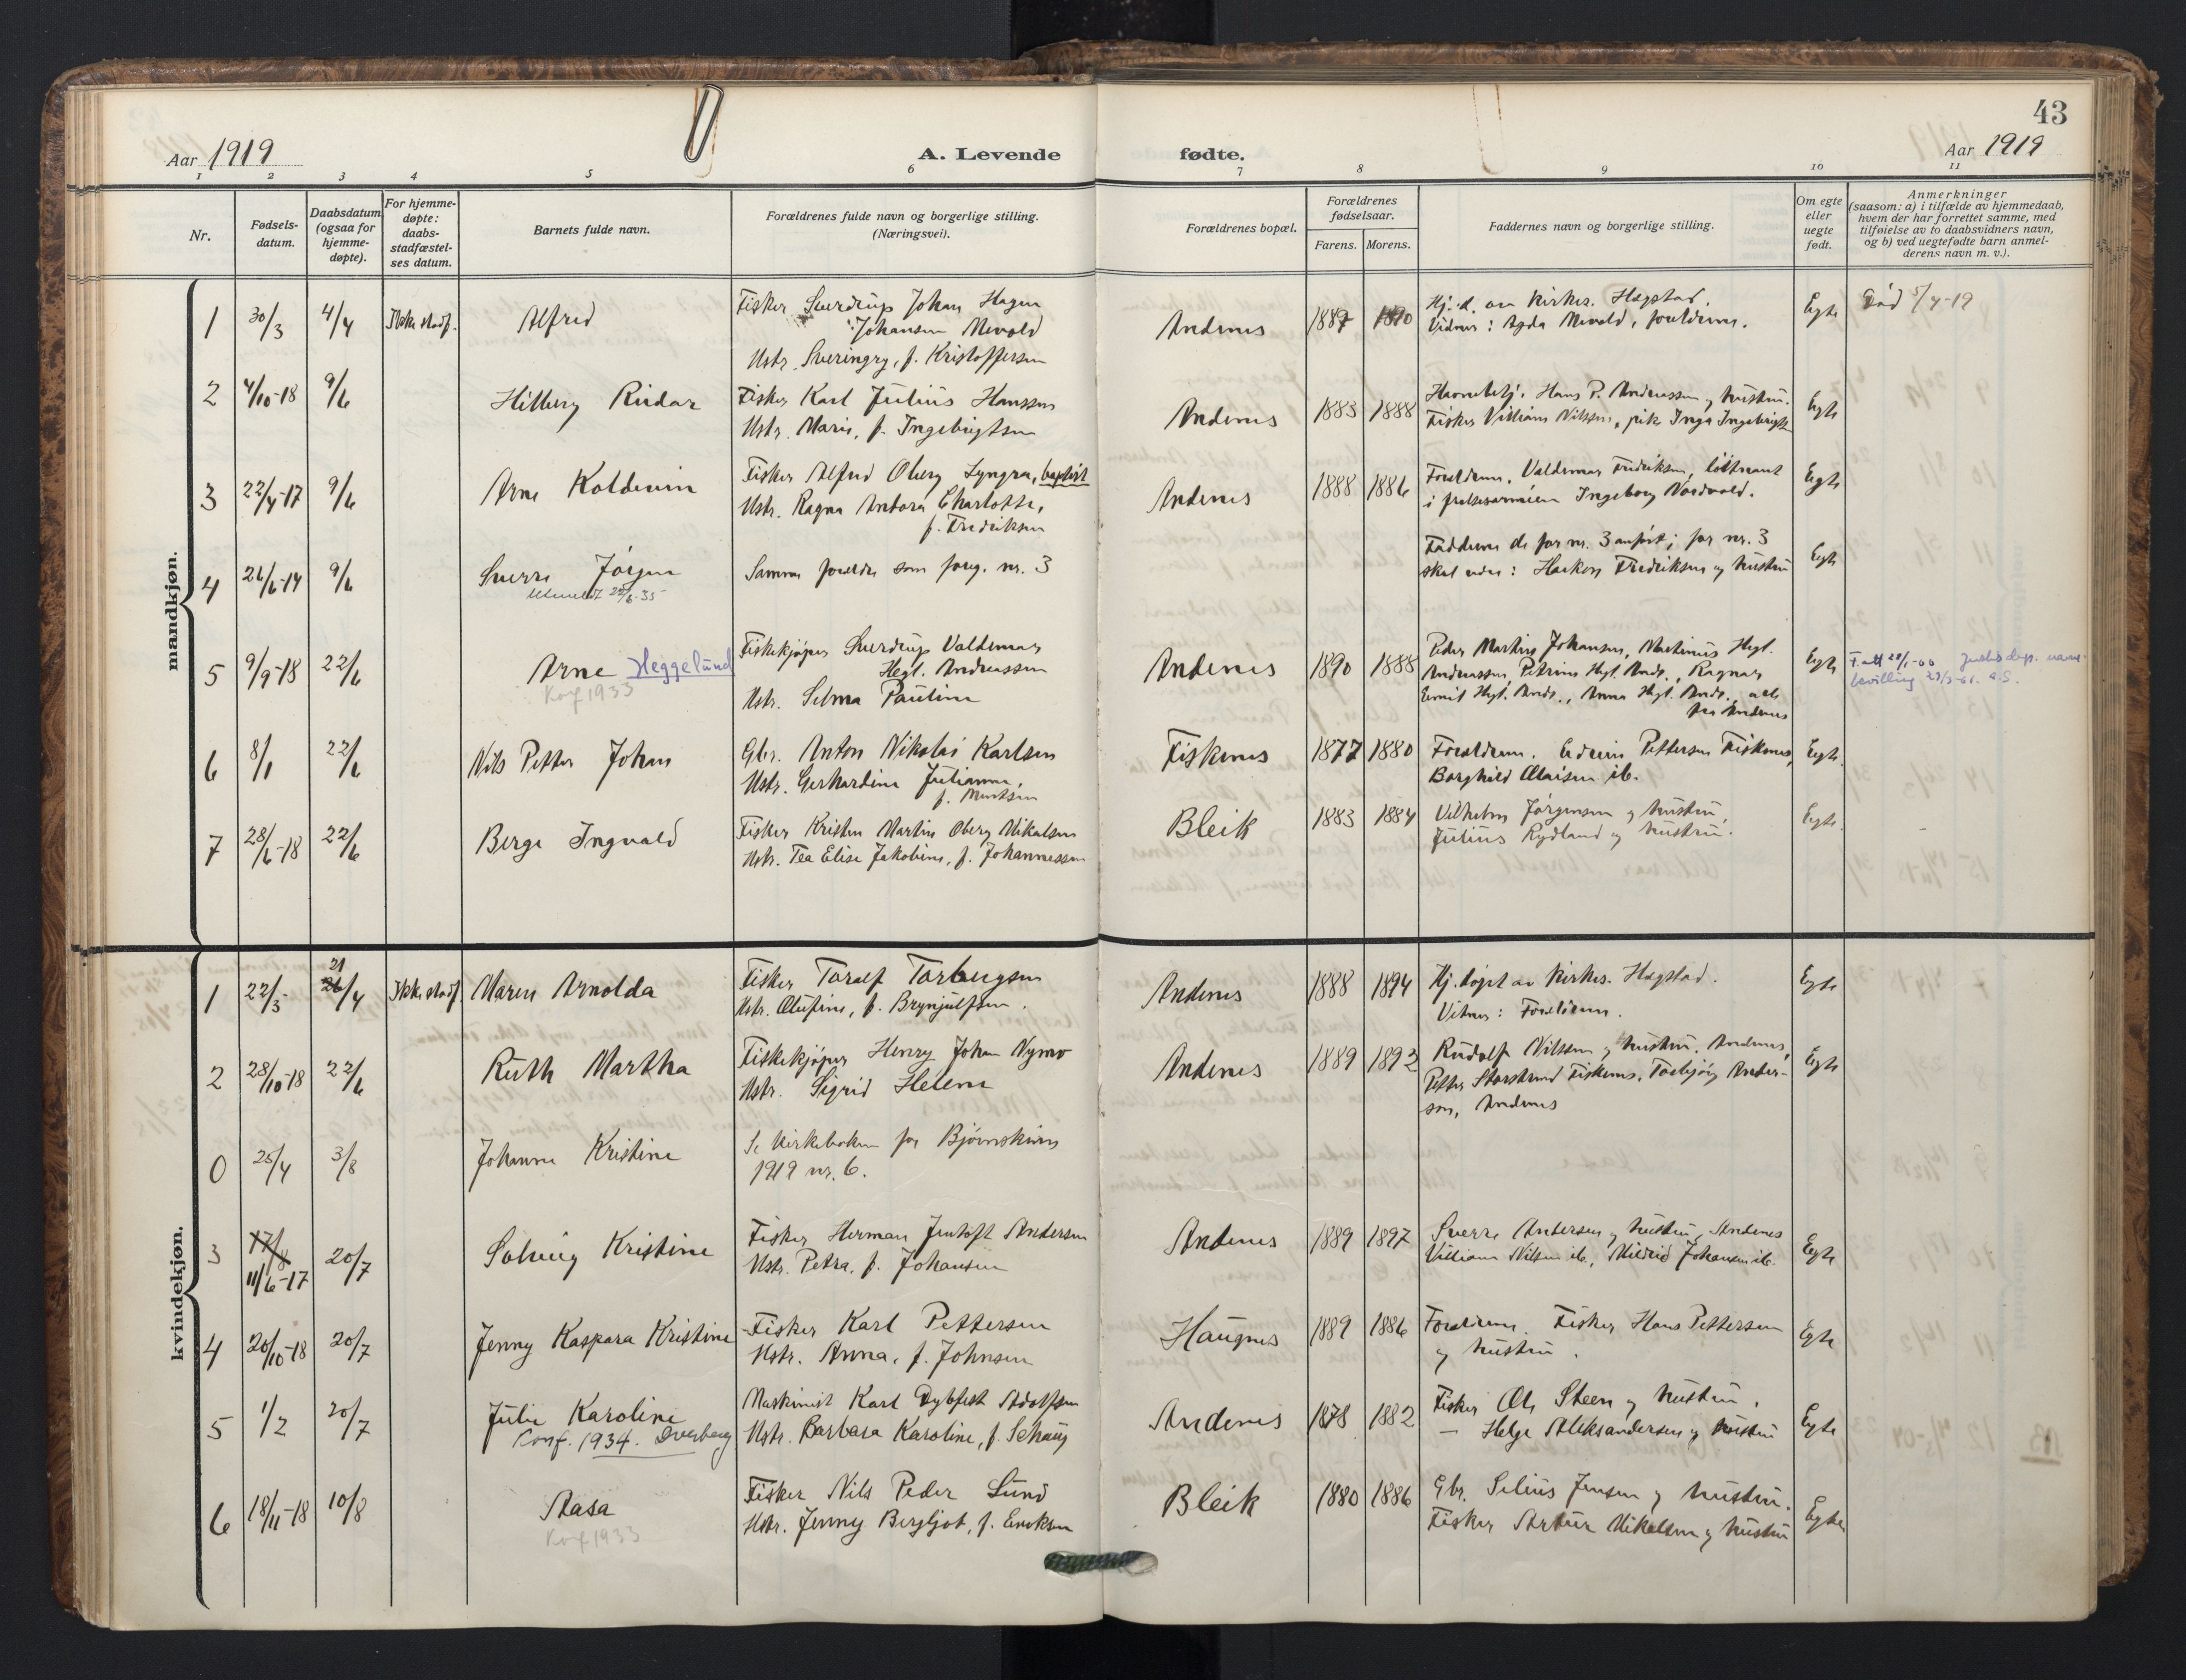 43
Aar 1919
A. Levende fødte.
Aar 1919
1 2 3 4 5 6 7 8 9 10 11
Nr.
Fødsels-
datum.
Daabsdatum
(ogsaa for
hjemme-
døpte).
For hjemme-
døpte:
daabs-
stadfæstel-
ses datum.
Barnets fulde navn.
Forældrenes fulde navn og borgerlige stilling.
(Næringsvei).
Forældrenes bopæl.
Forældrenes
fødselsaar.
Farens. Morens.
Faddernes navn og borgerlige stilling.
Om egte
eller
uegte
født.
Anmerkninger
(saasom: a) i tilfælde av hjemmedaab,
hvem der har forrettet samme, med
tilføielse av to daabsvidners navn,
og b) ved uegtefødte barn anmel-
derens navn m. v.).
mandkjøn.
1 30/3 4/4 Ikke stadf. Alfred
Fisker Sverdrup Johan Hagen
Johansen Nevold
Hstr. f. Kristoffersen
Andenes 1887 1890
Hj. d. av kirkes. Hegstad.
Vidner: Agda Nevold, foreldrene.
Egte Død 5/4-19
2 4/10-18 9/6 Hilberg Reidar
Fisker Karl Julius Hanssen
Hstr. Marie, f. Ingebrigtsen
Andenes 1883 1888
Havnebetj. Hans P. Andreassen og hustru.
Fisker Villiam Nilssen, pike Inga Ingebrigts
Egte
3 22/4-17 9/6 Arne Koldevin
Fisker Alfred Oberg Lyngra, baptist
Hstr. Ragna Andora Charlotte,
f. Fredriksen
Andenes 1888 1886
Foreldrene, Valdemar Fredriksen, løitnant
i frelsesarmeen Ingeborg Nordvold.
Egte
4 26/6-14 9/6 Sverre Jørgen
Utmeldt 22/6-35
Samme foreldre som foreg. nr. 3
Fadderne de for nr. 3 anført; for nr. 3
skal være: Haakon Fredriksen og hustru
Egte
5 9/9-18 22/6 Arne Heggelund
Konf 1933
Fiskekjøper Sverdrup Valdemar
Hegl. Andreassen
Hstr. Selma Pauline
Andenes 1890 1888
Peder Martin Johansen, Martinus Hegl.
Andreassen, Petrine Hegl. Andr., Ragnar
Hegl. Andr., Anna Hegl. Andr., alle
fra Andenes
Egte
F. att 28/1-60 Justisdep. navne-
bevilling 29/3-61.
6 8/1 22/6 Nils Petter Johan
Gbr. Anton Nikolai Karlsen
Hstr. Gerhardine Julianne,
Fiskenes 1877 1880
Foreldrene. Edvin Pettersen Fiskenes,
Borghild Olaisen ib.
Egte.
7 28/6-18 22/6 Berge Ingvald
Fisker Kristen Martin Oberg Nikalsen
Hstr. Tea Elise Jakobine, f. Johannessen
Bleik 1883 1884
Vilhelm Jørgensen og hustru,
Julius Rydland og hustru.
Egte.
kvindekjøn.
1 22/3 21/4 Ikke stadf. Maren Arnolda
Fisker Toralf Torbergsen
Hstr. Olufine, f. Brynjulfsen.
Andenes 1888 1894
Hj. døpt av kirkes. Hegstad.
Vitner: Foreldrene.
Egte
2 28/10-18 22/6 Ruth Martha
Fiskekjøper Henry Johan Nymo
Hstr. Sigrid Helene
Andenes 1889 1892
Rudolf Nilssen og hustru. Andenes,
Petter Storstrand Fiskenes, Torbjørg Ander-
sen, Andenes
Egte
0 25/4 3/8 Johanne Kristine
Se kirkeboken for Bjørnskinn
1919 nr. 6.
3 17/8 11/6-17 20/7 Solveig Kristine
Fisker Herman Jentoft Andersen
Hstr. Petra, f. Johansen
Andenes 1889 1897
Sverre Andersen og hustru, Andenes
Villiam Nilsen ib., Johansen ib.
Egte
4 20/10-18 20/7 Jenny Kaspara Kristine
Fisker Karl Pettersen
Hstr. Anna, f. Johnsen
Haugnes 1889 1886
Foreldrene. Fisker Hans Pettersen
og hustru.
Egte
5 1/2 20/7 Julie Karoline
Konf. 1934. Dverberg
Maskinist Karl Dybfest Adolfsen
Hstr. Barbara Karoline, f. Schaug
Andenes 1878 1882
Fisker Ole Steen og hustru.
— Helge Aleksandersen og hustru
Egte
6 18/11-18 10/8 Aasa
Konf 1933
Fisker Nils Peder Lund
Hstr. Jenny Bergljot, f. Eriksen
Bleik 1880 1886
Gbr. Selius Jensen og hustru.
Fisker Artur Nikalsen og hustru
Egte